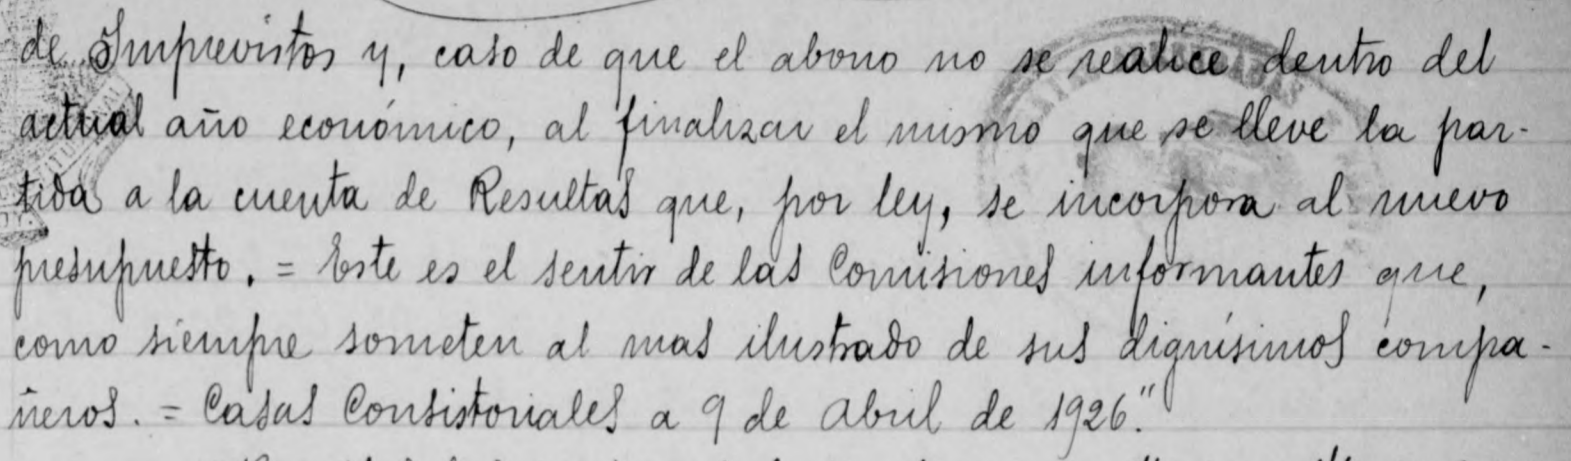 de Imprevistos y, caso de que el abono no se realice dentro del
actual año económico, al finalizar el mismo que se lleve la par-
tida a la cuenta de Resultas que, por ley, se incorpora al nuevo
presupuesto. = Este es el sentir de las Comisiones informantes que,
como siempre someten al mas ilustrado de sus dignísimos compa-
ñeros. = Casas Consistoriales a 9 de Abril de 1926."